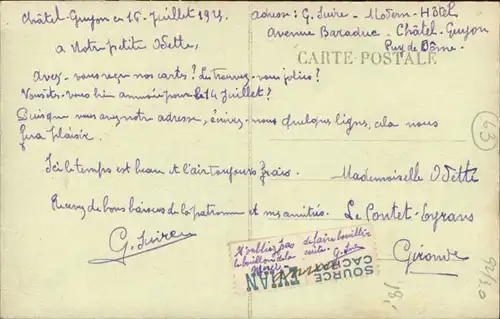 Châtel-Guyon ce 16 Juillet 1921.
à Notre petite Odette,
Avez-vous reçu nos cartes? Les trouvez-vous jolies?
Vous êtes-vous bien amusée pour le 14 Juillet?
Puisque vous avez notre adresse, écrivez-nous quelques lignes, cela nous
fera plaisir.
Ici le temps est beau et l'air toujours frais.
Recevez de bons baisers de la patronne et mes amitiés.
G. Suire
adresse: G. Suire - Modern-Hôtel
Avenue Baraduc - Châtel-Guyon
Puy de Dôme.
CARTE POSTALE
63
Mademoiselle Odette
Le Pontet-Eyrans
Gironde
N'oubliez pas de faire bouillir
le bouillon de la
G. Suire
SOURCE
CACHAT
EVIAN
18,